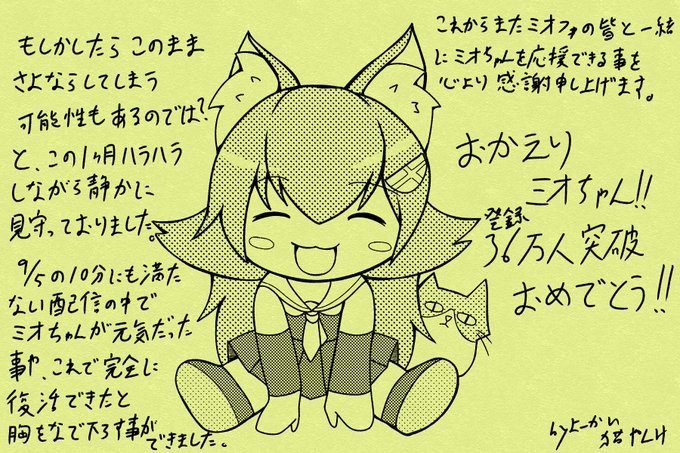 もしかしたら このまま
さよならしてしまう
可能性もあるのでは?
と、この1ヶ月ハラハラ
しながら静かに
見守っておりました。
9/5の10分にも満た
ない配信の中で
ミオちゃんが元気だった
事や、これで完全に
復活できたと
胸をなで下ろす事ができました。
これからまたミオファの皆と一緒
にミオちゃんを応援できる事を
心より 感謝申し上げます。
おかえり
ミオちゃん!!
登録
36万人突破
おめでとう!!